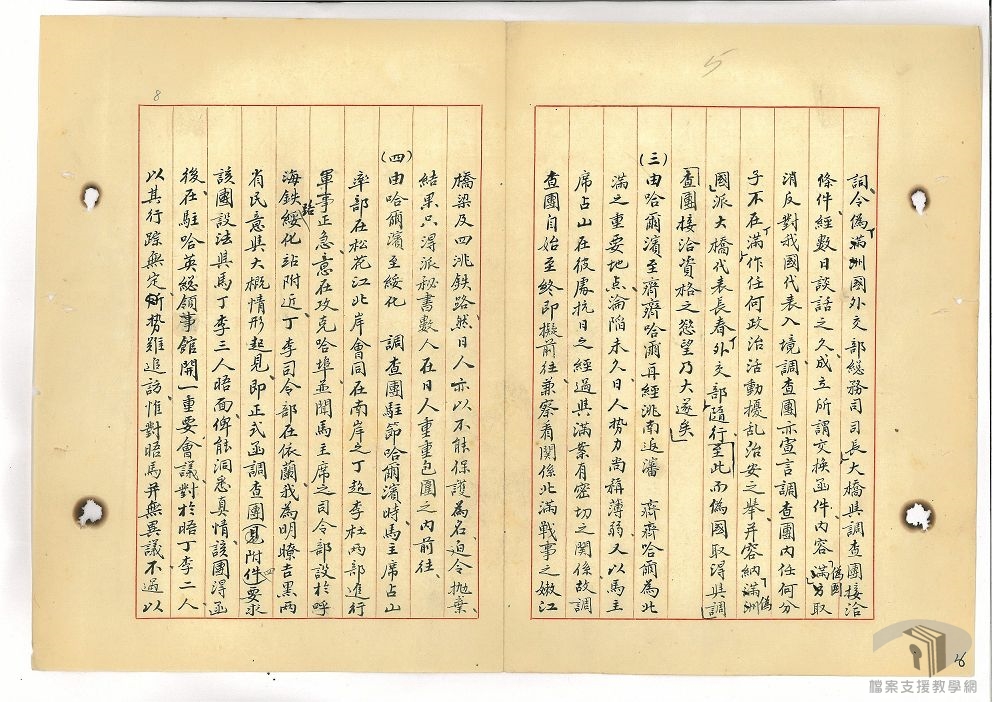 5
詞、令偽「滿洲國外交部總務司司長大橋與調查團接洽
條件、經數日談話之久、成立所謂交換函件、內容「滿方偽國取
消反對我國代表入境、調查團亦宣言調查團內任何分
子不在「滿」作任何政治活動擾亂治安之舉、并容納「滿洲偽
國」派大橋代表長春「外交部隨行至此而偽國取得與調
查團接洽資格之慾望乃大遂矣
(三)由哈爾濱至齊齊哈爾再經洮南返瀋 齊齊哈爾為北
滿之重要地點、淪陷未久、日人勢力尚稱薄弱、又以馬主
席占山在彼處抗日之經過與滿案有密切之関係、故調
查團自始至終即擬前往、兼察看関係北滿戰事之嫩江
8
橋梁及四洮鉄路、然日人亦以不能保護為名迫令拋棄、
結果只得派秘書數人在日人重重包圍之內前往、
(四)由哈爾濱至綏化 調查團駐節哈爾濱時、馬主席占山
率部在松花江北岸會同在南岸之丁超李杜兩部進行
軍事正急、意在攻克哈埠、並聞馬主席之司令部設於呼
海鉄路綏化站附近、丁李司令部在依蘭、我為明瞭吉黑兩
省民意與大概情形起見、即正式函調查團(見附件四)要求
該國設法與馬丁李三人晤面、俾能洞悉真情、該團得函
後在駐哈英総領事館開一重要會議對於晤丁李二人、
以其行踪無定、所勢難追訪、惟對晤馬并無異議、不過以
26
檔案支援教學網